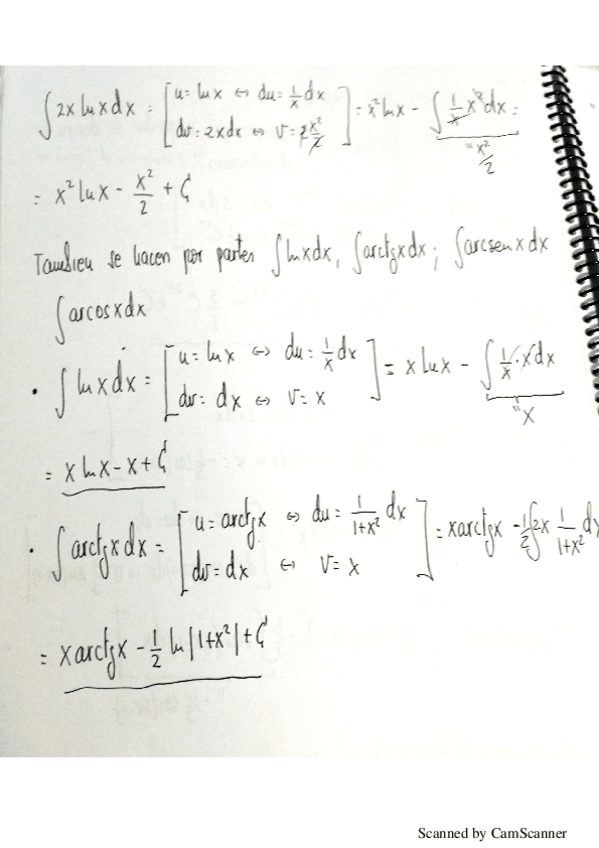 ∫2x ln x dx = [u = ln x ⇔ du = 1/x dx
dv = 2x dx ⇔ v = 2x²/2] = x² ln x - ∫ 1/x x² dx =
" x²/2
= x² ln x - x²/2 + C
Tambien se hacen por partes ∫ln x dx, ∫arctg x dx; ∫arcsen x dx
∫arcos x dx
• ∫ ln x dx = [u = ln x ⇔ du = 1/x dx
dv = dx ⇔ v = x] = x ln x - ∫ 1/x · x dx
" x
= x ln x - x + C
• ∫ arctg x dx = [u = arctg x ⇔ du = 1/1+x² dx
dv = dx ⇔ v = x] = x arctg x - 1/2 ∫ 2x 1/1+x² dx
= x arctg x - 1/2 ln |1+x²| + C
Scanned by CamScanner